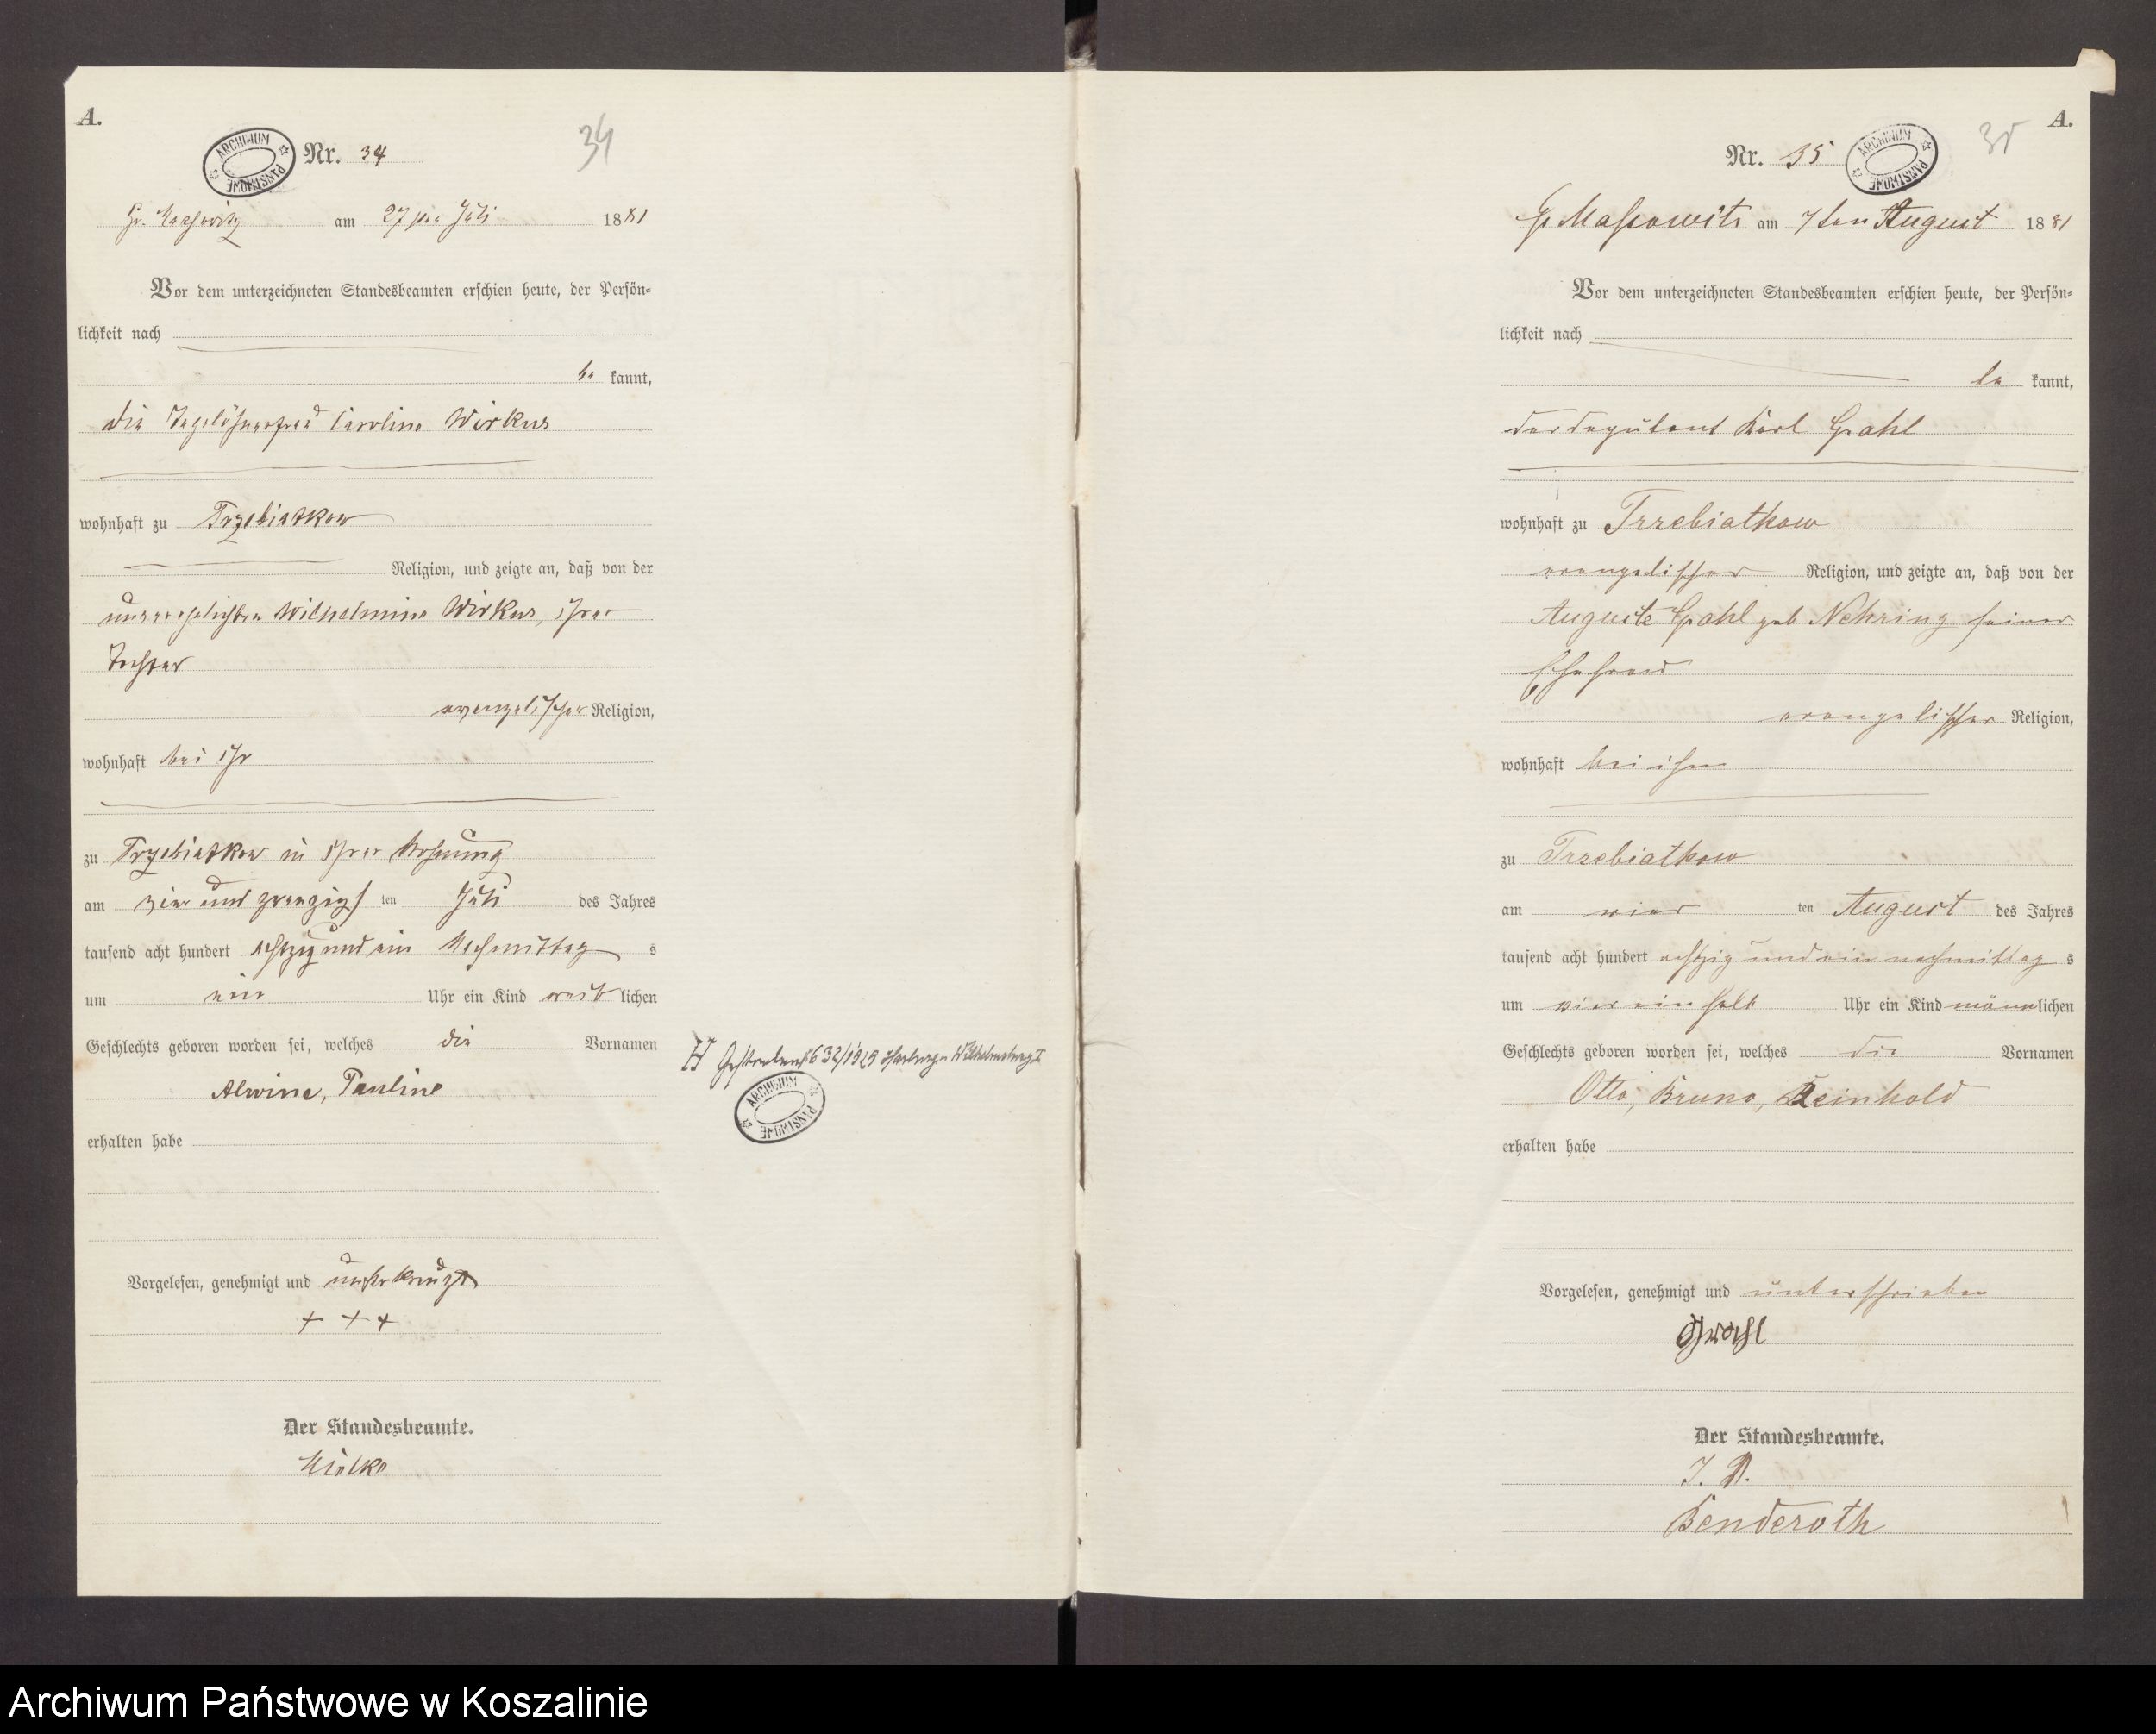 A.
ARCHIWUM PAŃSTWOWE
Nr. 34
34
Gr. Massowitz am 27ten Juli 1881
Vor dem unterzeichneten Standesbeamten erschien heute, der Persön-
lichkeit nach
be kannt,
die Tagelöhnerfrau Caroline Wirkus
wohnhaft zu Trzebiatkow
Religion, und zeigte an, daß von der
unverehelichten Wilhelmine Wirkus, ihrer
Tochter
evangelischer Religion,
wohnhaft bei ihr
zu Trzebiatkow in ihrer Wohnung
am vier und zwanzigs ten Juli des Jahres
tausend acht hundert achtzig und ein Nachmittag s
um ein Uhr ein Kind weib lichen
Geschlechts geboren worden sei, welches die Vornamen
Alwine, Pauline
erhalten habe
Vorgelesen, genehmigt und unterkreuzt
+ + +
Der Standesbeamte.
Mielke
H Gestorben 632/1929 Harburg-Wilhelmsburg I
ARCHIWUM PAŃSTWOWE
A.
Nr. 35
ARCHIWUM PAŃSTWOWE
35
Gr Massowitz am 7ten August 1881
Vor dem unterzeichneten Standesbeamten erschien heute, der Persön-
lichkeit nach
be kannt,
der Deputant Karl Grahl
wohnhaft zu Trzebiatkow
evangelischer Religion, und zeigte an, daß von der
Auguste Grahl geb Nehring seiner
Ehefrau
evangelischer Religion,
wohnhaft bei ihm
zu Trzebiatkow
am vier ten August des Jahres
tausend acht hundert achtzig und ein nachmittag s
um vier ein halb Uhr ein Kind männlichen
Geschlechts geboren worden sei, welches die Vornamen
Otto, Bruno, Reinhold
erhalten habe
Vorgelesen, genehmigt und unterschrieben
Grahl
Der Standesbeamte.
I. V.
Benderoth
Archiwum Państwowe w Koszalinie